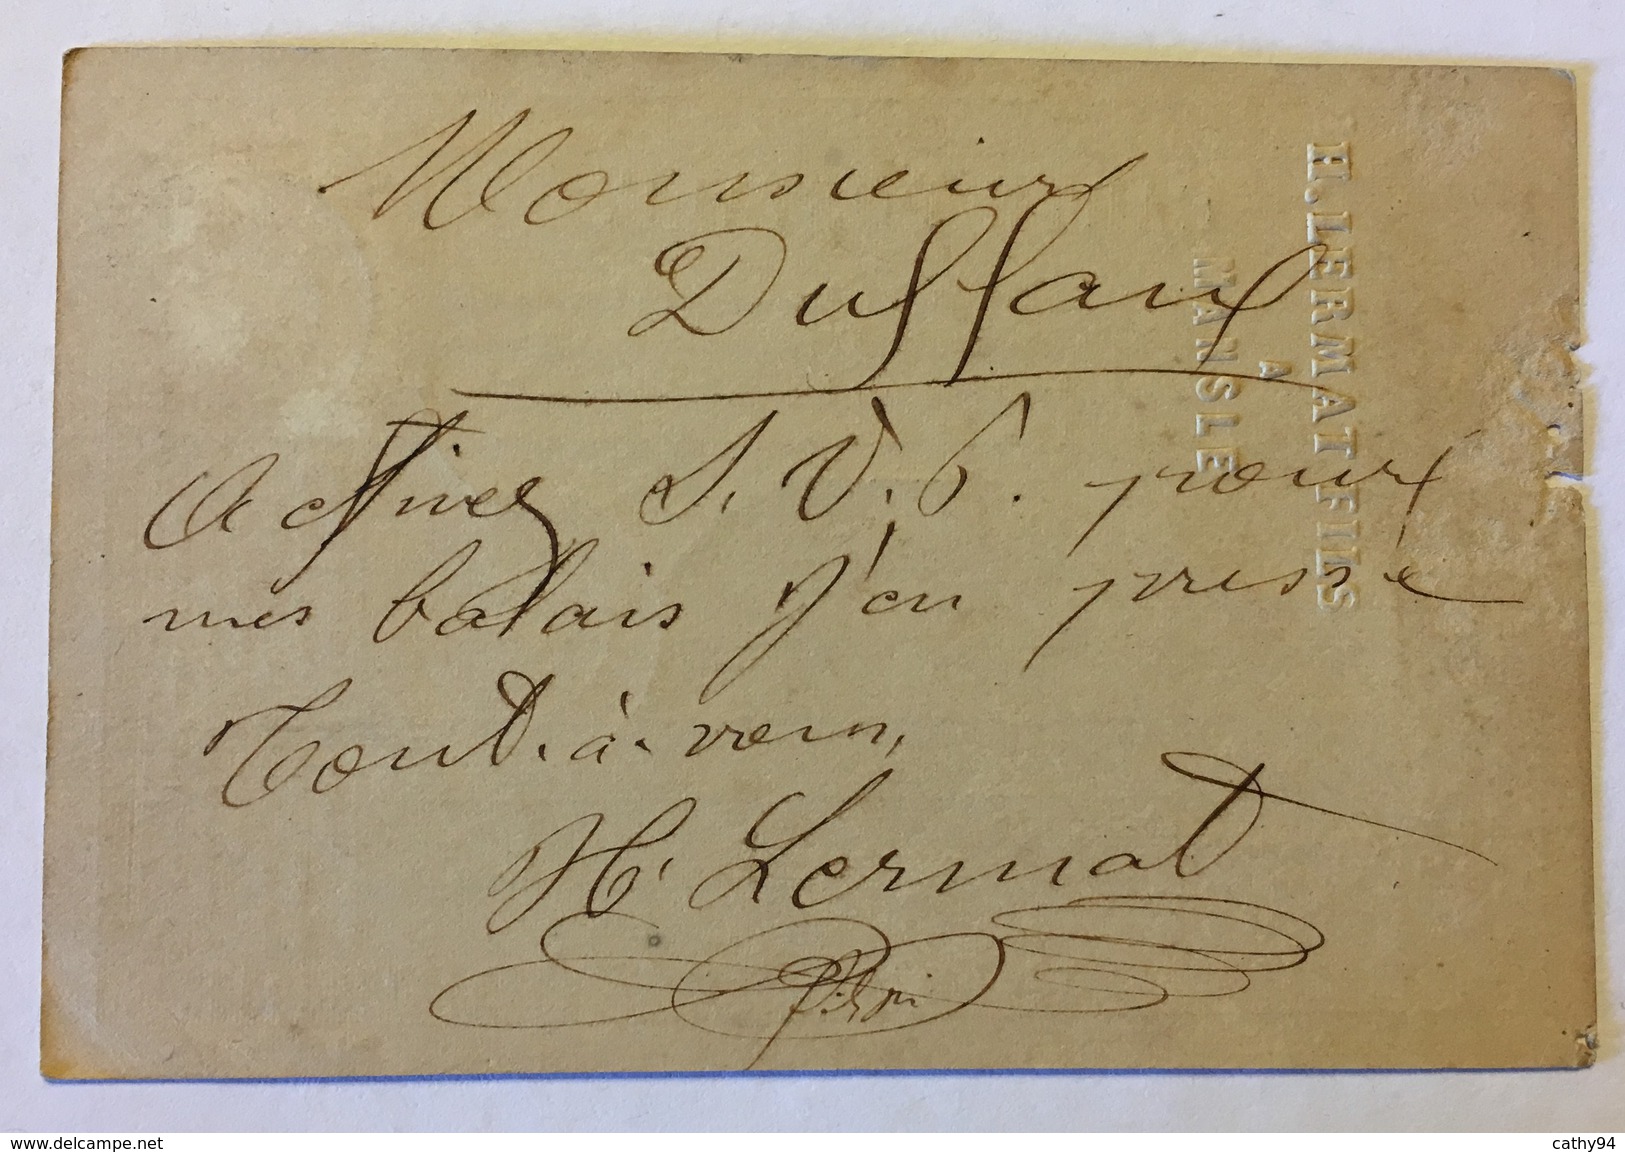 Monsieur
Duffaux
Activer S.V.P. pour
mes balais j'en pressé
Tout-à-vous,
H. Lermat
H. LERMAT FILS
A
MANSLE
www.delcampe.net
cathy94